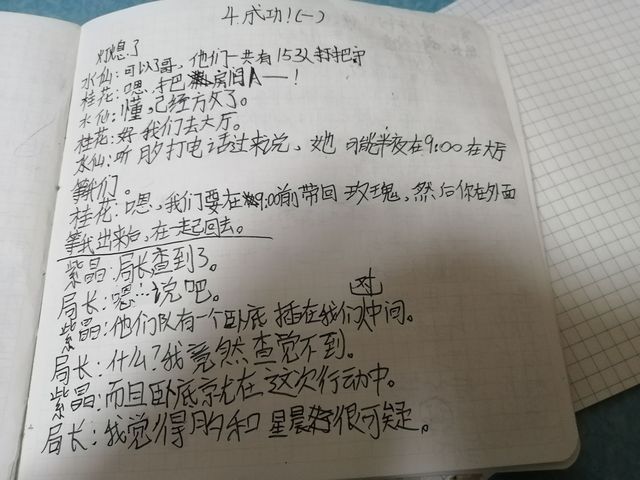 4.成功!(一)
灯熄了
水仙:可以了哥,他们一共有153人打把守
桂花:嗯,把房间A——!
水仙:懂,已经方文了。
桂花:好我们去大厅。
水仙:听 昐打电话过来说、她 可能半夜在9:00在大厅
等你们。
桂花:嗯、我们要在9:00前带回 玫瑰、然后你在外面
等我出来后,在一起回去。
紫晶:局长查到了。
局长:嗯…说吧。
紫晶:他们队有一个卧底 插在我们队中间。
局长:什么?我竟然查觉不到。
紫晶:而且卧底就在这次行动中。
局长:我觉得昐和 星晨 很可疑。